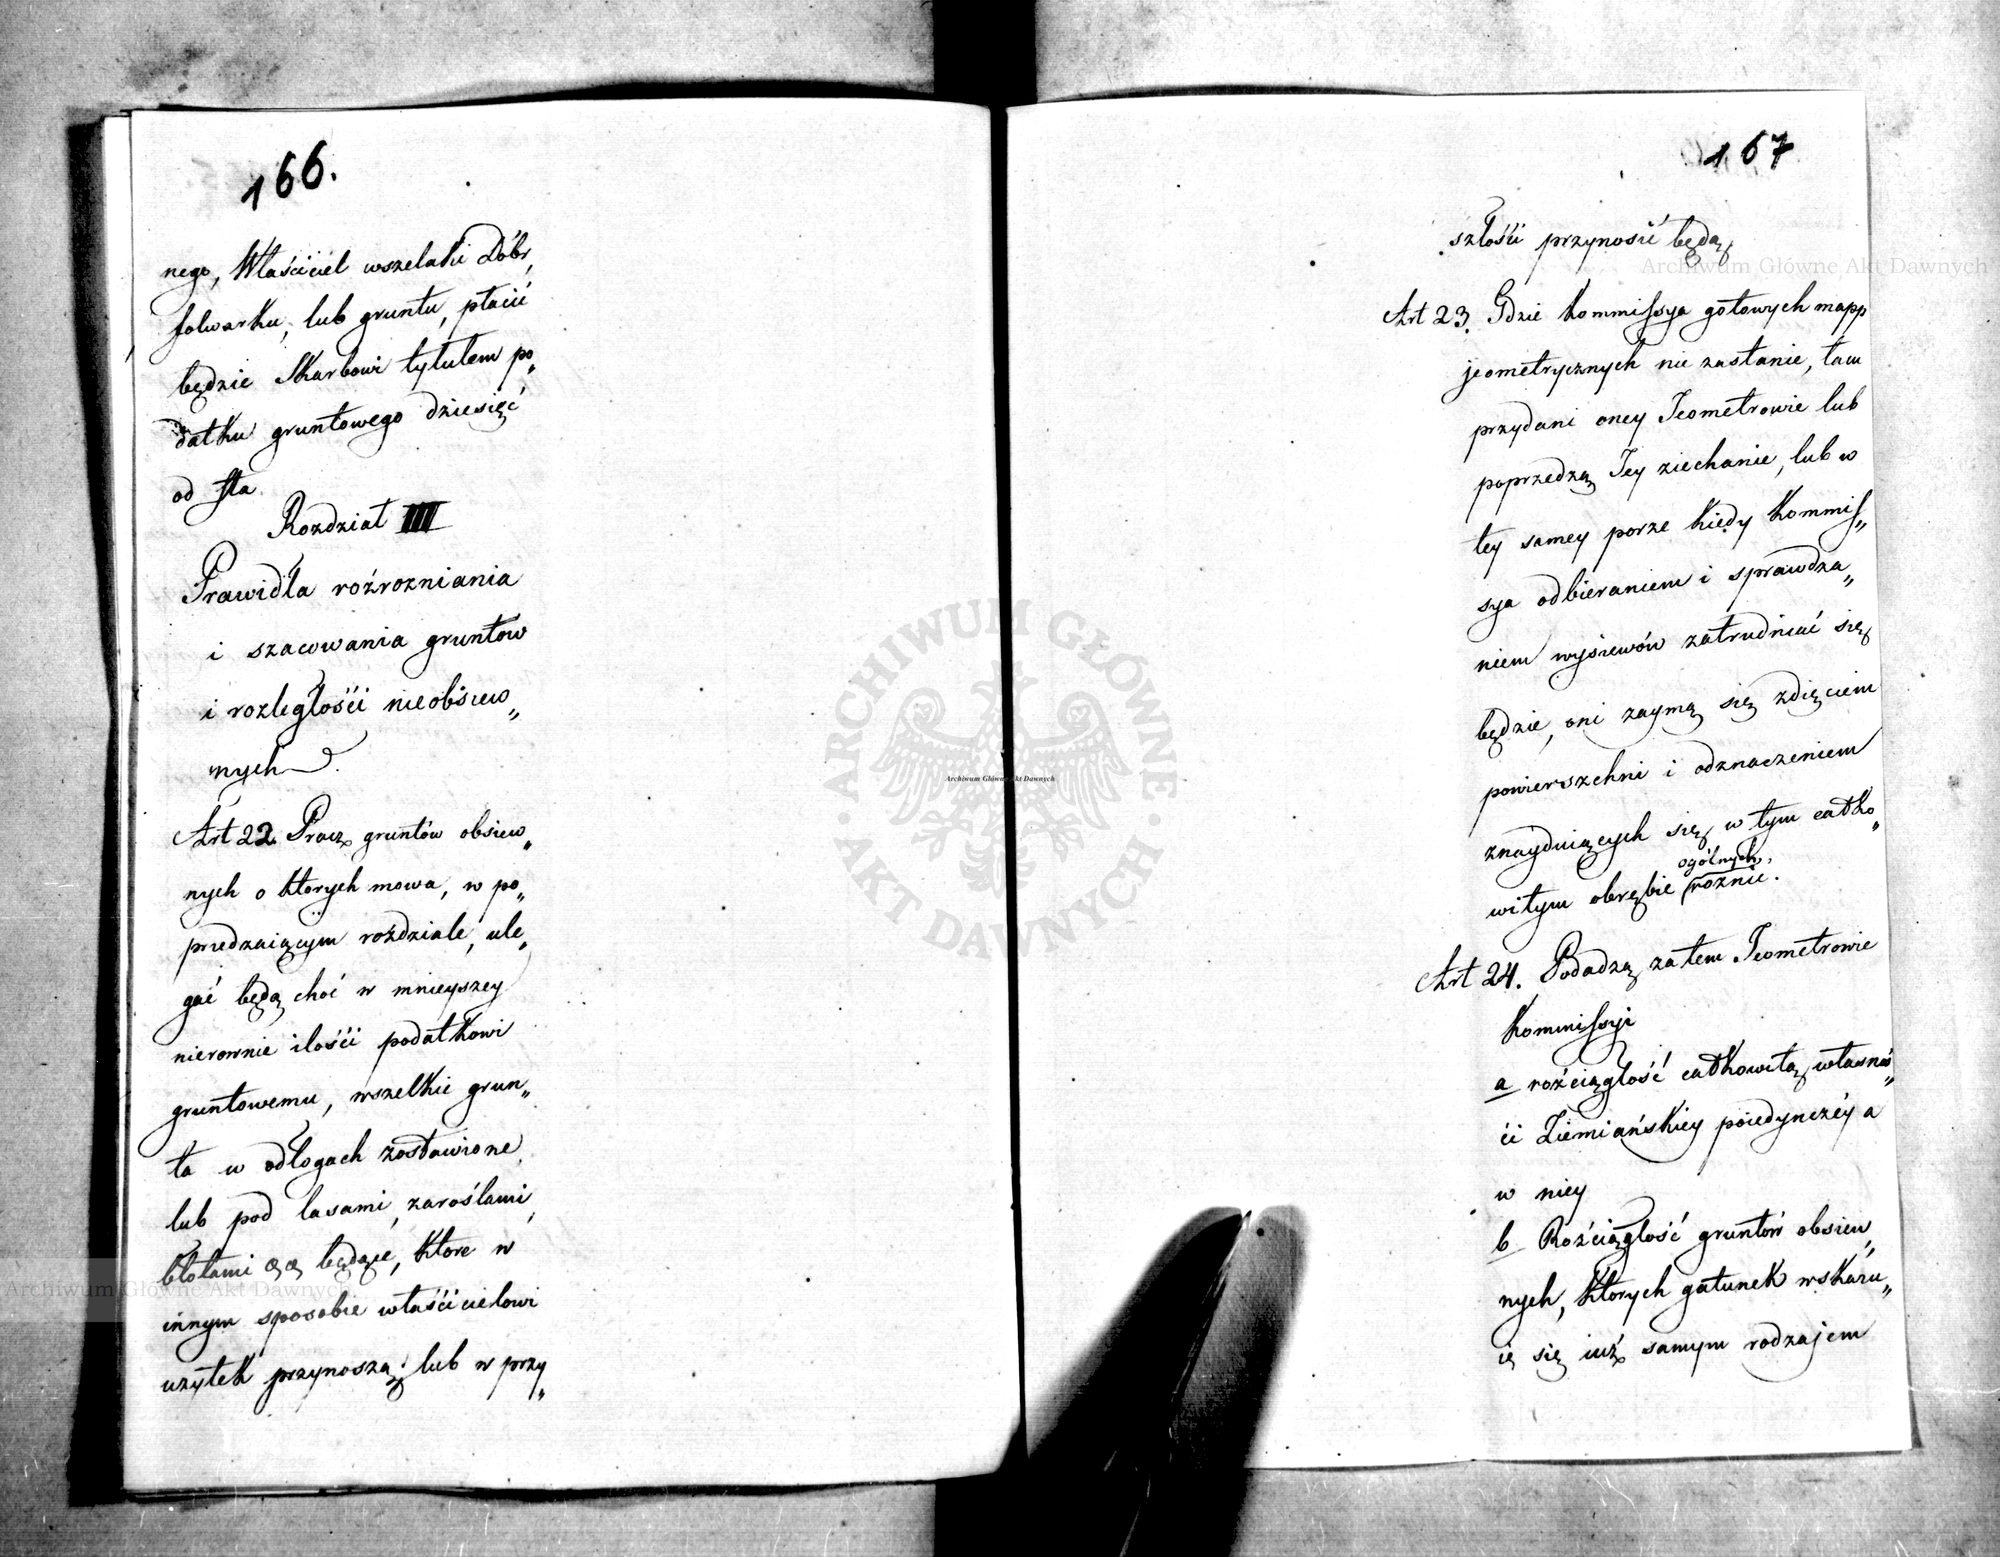 166.
nego, Właściciel wszelaki Dóbr,
folwarku, lub gruntu, płacić
będzie Skarbowi tytułem po„
datku gruntowego dziesięć
od sta
Rozdział III
Prawidła rożrozniania
i szacowania gruntow
i rozległości nieobsiew„
nych
Art 22. Procz gruntów obsiew„
nych o ktorych mowa, w po„
przedzaiącym rożdziale, ule„
gać będą choć w mnieyszey
nierownie ilości podatkowi
gruntowemu, wszelkie grun„
ta w odłogach zostawione,
lub pod lasami, zaroślami,
błotami będące, ktore w
innym sposobie właścicielowi
uzytek przynoszą; lub w przy„
167
szłości przynosić będą,
Art 23. Gdzie Kommissya gotowych mapp
jeometrycznych nie zastanie, tam
przydani oney Jeometrowie lub
poprzedzą Jey ziechanie, lub w
tey samey porze kiedy Kommis„
sya odbieraniem i sprawdza„
niem wysiewów zatrudniać się
będzie, oni zaymą się zdięciem
powierszchni i odznaczeniem
znayduiących się w tym całko„
ogólnych
witym obrębie rożnic.
Art 24. Podadzą zatem Jeometrowie
Kommissyi
a rożciągłość całkowitą własnoś„
ci Ziemiańskiey poiedynczéy a
w niey
b Rożciągłość gruntów obsiew„
nych, ktorych gatunek wskazu„
ie się iuż samym rodzajem
Archiwum Główne Akt Dawnych
Archiwum Główne Akt Dawnych
Archiwum Główne Akt Dawnych
ARCHIWUM GŁÓWNE
AKT DAWNYCH